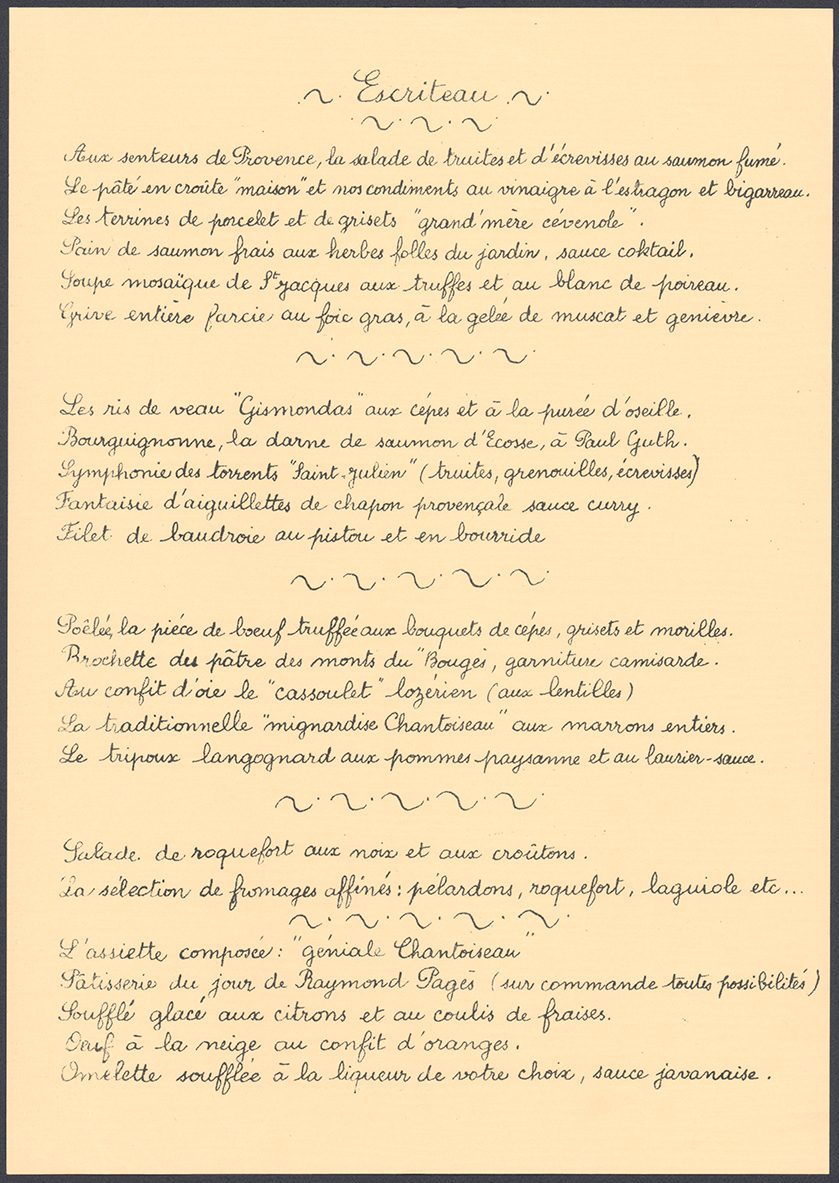 Escriteau
Aux senteurs de Provence, la salade de truites et d'écrevisses au saumon fumé.
Le pâté en croûte "maison" et nos condiments au vinaigre à l'estragon et bigarreau.
Les terrines de porcelet et de grisets "grand'mère cévenole".
Pain de saumon frais aux herbes folles du jardin, sauce coktail.
Soupe mosaïque de St Jacques aux truffes et au blanc de poireau.
Grive entière farcie au foie gras, à la gelée de muscat et genièvre.
Les ris de veau "Gismondas" aux cépes et à la purée d'oseille.
Bourguignonne, la darne de saumon d'Ecosse, à Paul Guth.
Symphonie des torrents "Saint-Julien" (truites, grenouilles, écrevisses)
Fantaisie d'aiguillettes de chapon provençale sauce curry.
Filet de baudroie au pistou et en bourride
Poêlée, la piéce de boeuf truffée aux bouquets de cépes, grisets et morilles.
Brochette du pâtre des monts du "Bougès, garniture camisarde.
Au confit d'oie le "cassoulet" lozérien (aux lentilles)
La traditionnelle "mignardise Chantoiseau" aux marrons entiers.
Le tripoux langognard aux pommes paysanne et au laurier-sauce.
Salade de roquefort aux noix et aux croûtons.
La sélection de fromages affinés: pélardons, roquefort, laguiole etc...
L'assiette composée: "géniale Chantoiseau"
Pâtisserie du jour de Raymond Pagès (sur commande toutes possibilités)
Soufflé glacé aux citrons et au coulis de fraises.
Oeuf à la neige au confit d'oranges.
Omelette soufflée à la liqueur de votre choix, sauce javanaise.